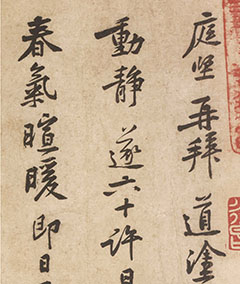 庭坚再拜道塗
動靜遂六十許日
春氣暄暖即日